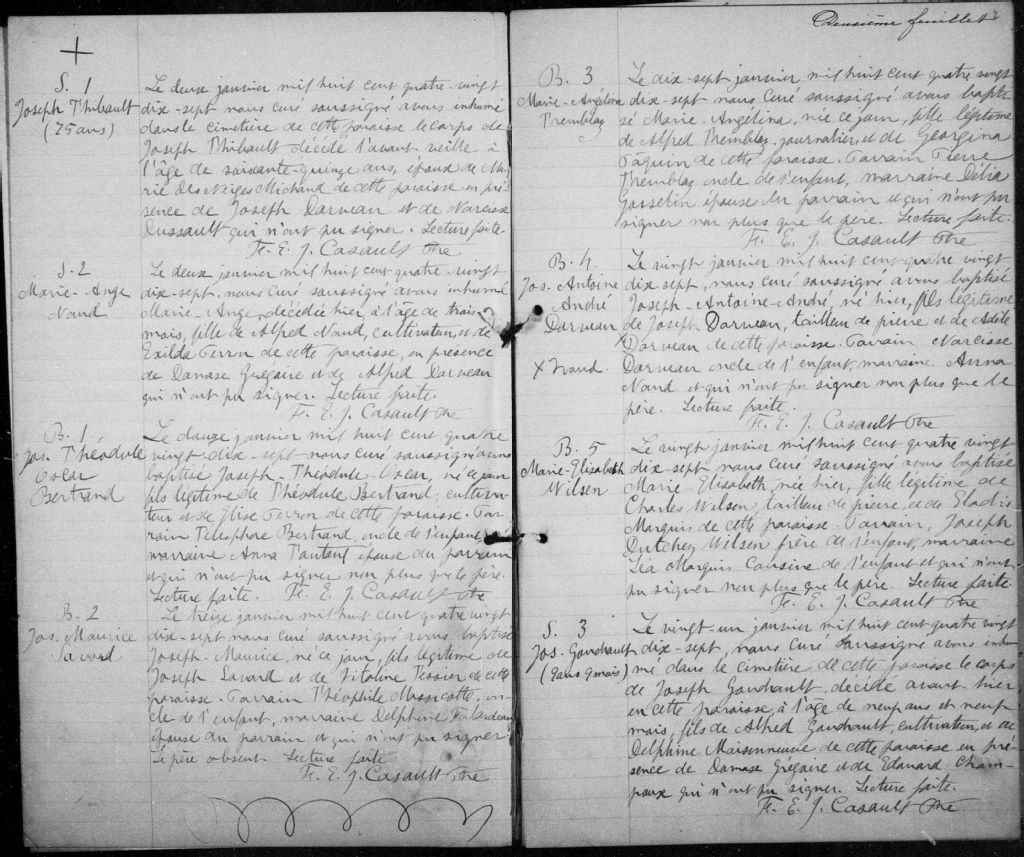 S. 1
Joseph Thibault
(75 ans)
Le deux janvier mil huit cent quatre vingt
dix-sept nous curé soussigné avons inhumé
dans le cimetière de cette paroisse le corps de
Joseph Thibault décédé l'avant veille à
l'âge de soixante-quinze ans, époux de Ma-
rie Des Neiges Michaud de cette paroisse en pré-
sence de Joseph Darveau et de Narcisse
Dussault qui n'ont pu signer. Lecture faite.
Fr. E. J. Casault Ptre
S. 2
Marie-Ange
Naud
Le deux janvier mil huit cent quatre vingt
dix-sept, nous curé soussigné avons inhumé
Marie-Ange, décédée hier, à l'âge de trois
mois, fille de Alfred Naud, cultivateur, et de
Exilda Perron de cette paroisse, en présence
de Damase Grégaire et de Alfred Darveau
qui n'ont pu signer. Lecture faite.
Fr. E. J. Casault Ptre
B. 1,
Jos. Théodule
Oscar
Bertrand
Le douze janvier mil huit cent quatre
vingt-dix-sept nous curé soussigné avons
baptisé Joseph-Théodule-Oscar, né ce jour
fils légitime de Théodule Bertrand, cultiva-
teur et de Elise Perron de cette paroisse. Par-
rain Télesphore Bertrand, oncle de l'enfant,
marraine Anna Panteuf épouse du parrain
et qui n'ont pu signer non plus que le père.
Lecture faite. Fr. E. J. Casault Ptre
B. 2
Jos. Maurice
Savard
Le treize janvier mil huit cent quatre vingt
dix-sept nous curé soussigné avons baptisé
Joseph-Maurice, né ce jour, fils légitime de
Joseph Savard et de Vitaline Tessier de cette
paroisse. Parrain Théophile Massicotte, on-
cle de l'enfant, marraine Delphine Falardeau
épouse du parrain et qui n'ont pu signer
Le père absent. Lecture faite
Fr. E. J. Casault Ptre
Deuxième feuillet
B. 3
Marie-Angélina
Tremblay
Le dix-sept janvier mil huit cent quatre vingt
dix-sept nous, curé soussigné avons bapti
sé Marie-Angélina, née ce jour, fille légitime
de Alfred Tremblay, journalier, et de Georgina
Pâquin de cette paroisse. Parrain Pierre
Tremblay oncle de l'enfant, marraine Délia
Gosselin épouse du parrain et qui n'ont pu
signer non plus que le père. Lecture faite.
Fr. E. J. Casault Ptre
B. 4.
Jos. Antoine
André
Darveau
X Naud.
Le vingt janvier mil huit cent quatre vingt
dix-sept, nous curé soussigné avons baptisé
Joseph-Antoine-André, né hier, fils légitime
de Joseph Darveau, tailleur de pierre et de Adèle
X Darveau de cette paroisse. Parrain Narcisse
Darveau oncle de l'enfant, marraine Anna
Naud et qui n'ont pu signer non plus que le
père. Lecture faite.
Fr. E. J. Casault Ptre
B. 5
Marie-Elisabeth
Wilsen
Le vingt janvier mil huit cent quatre vingt
dix-sept nous curé soussigné avons baptisé
Marie-Elisabeth, née hier, fille légitime de
Charles Wilsen, tailleur de pierre, et de Elodie
Marquis de cette paroisse. Parrain, Joseph
Dutchey Wilsen frère de l'enfant, marraine
Léa Marquis Cousine de l'enfant et qui n'ont
pu signer non plus que le père. Lecture faite
Fr. E. J. Casault Ptre
S. 3
Jos. Gaudrault
(9 ans 9 mois)
Le vingt-un janvier mil huit cent quatre vingt
dix-sept, nous curé soussigné avons inhu
mé dans le cimetière de cette paroisse le corps
de Joseph Gaudrault, décédé avant-hier
en cette paroisse, à l'âge de neuf ans et neuf
mois, fils de Alfred Gaudrault, cultivateur, et de
Delphine Maisonneuve de cette paroisse en pré-
sence de Damase Grégaire et de Edouard Cham-
poux qui n'ont pu signer. Lecture faite.
Fr. E. J. Casault Ptre